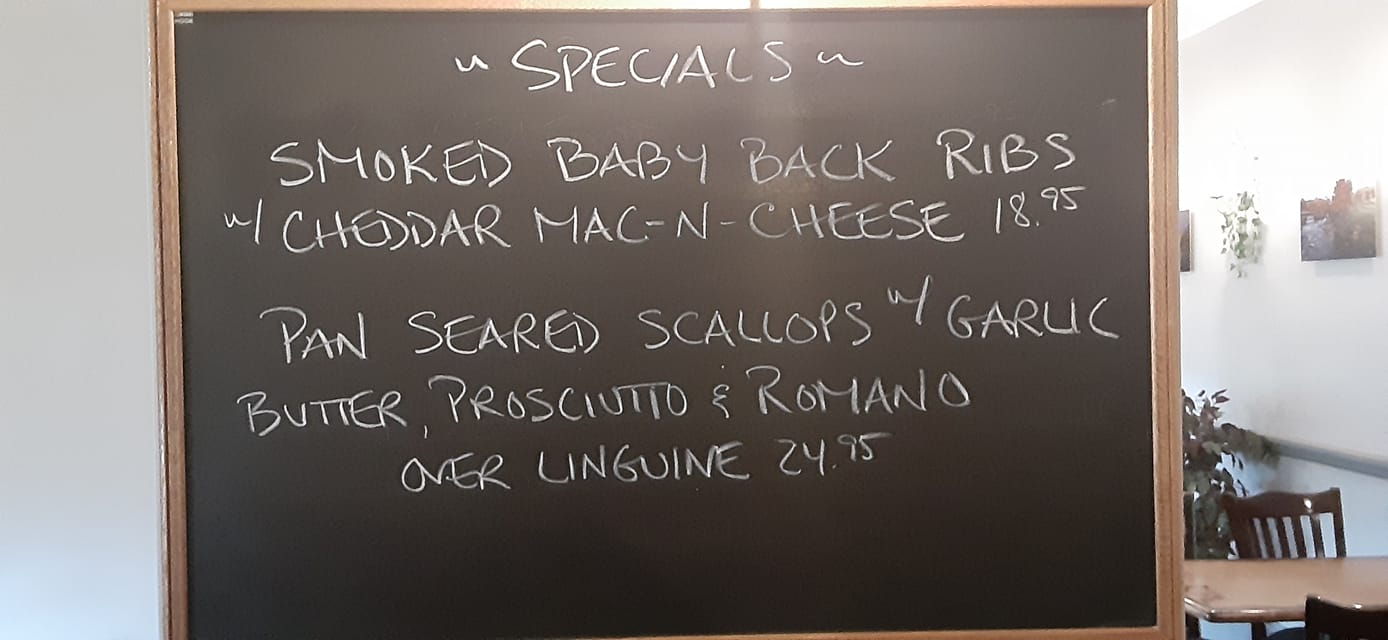 ~ SPECIALS ~
SMOKED BABY BACK RIBS
w/ CHEDDAR MAC-N-CHEESE 18.95
PAN SEARED SCALLOPS w/ GARLIC
BUTTER, PROSCIUTTO & ROMANO
OVER LINGUINE 24.95